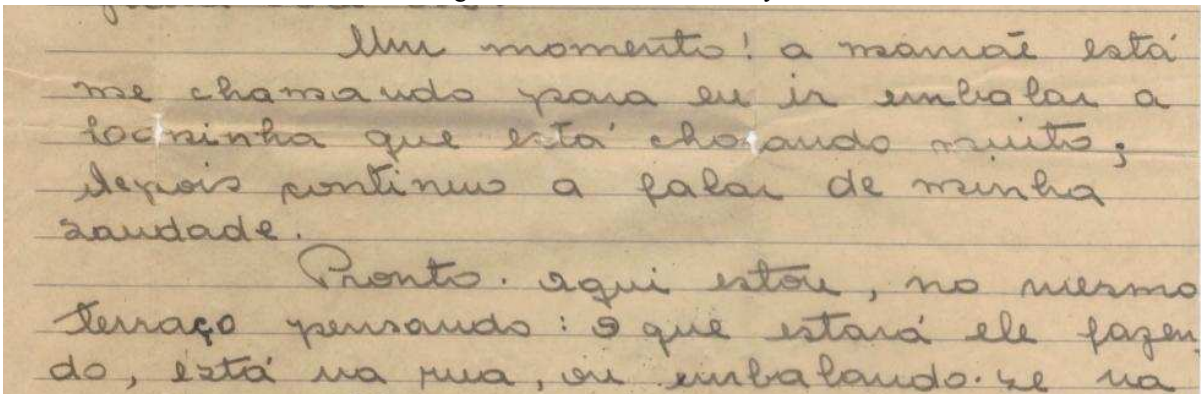 Um momento! a mamãe está
me chamando para eu ir embalar a
que está chorando muito;
depois continuo a falar de minha
saudade.
Pronto. aqui estou, no mesmo
terraço pensando: O que estará ele fazen
do, está na rua, ou embalando-se na